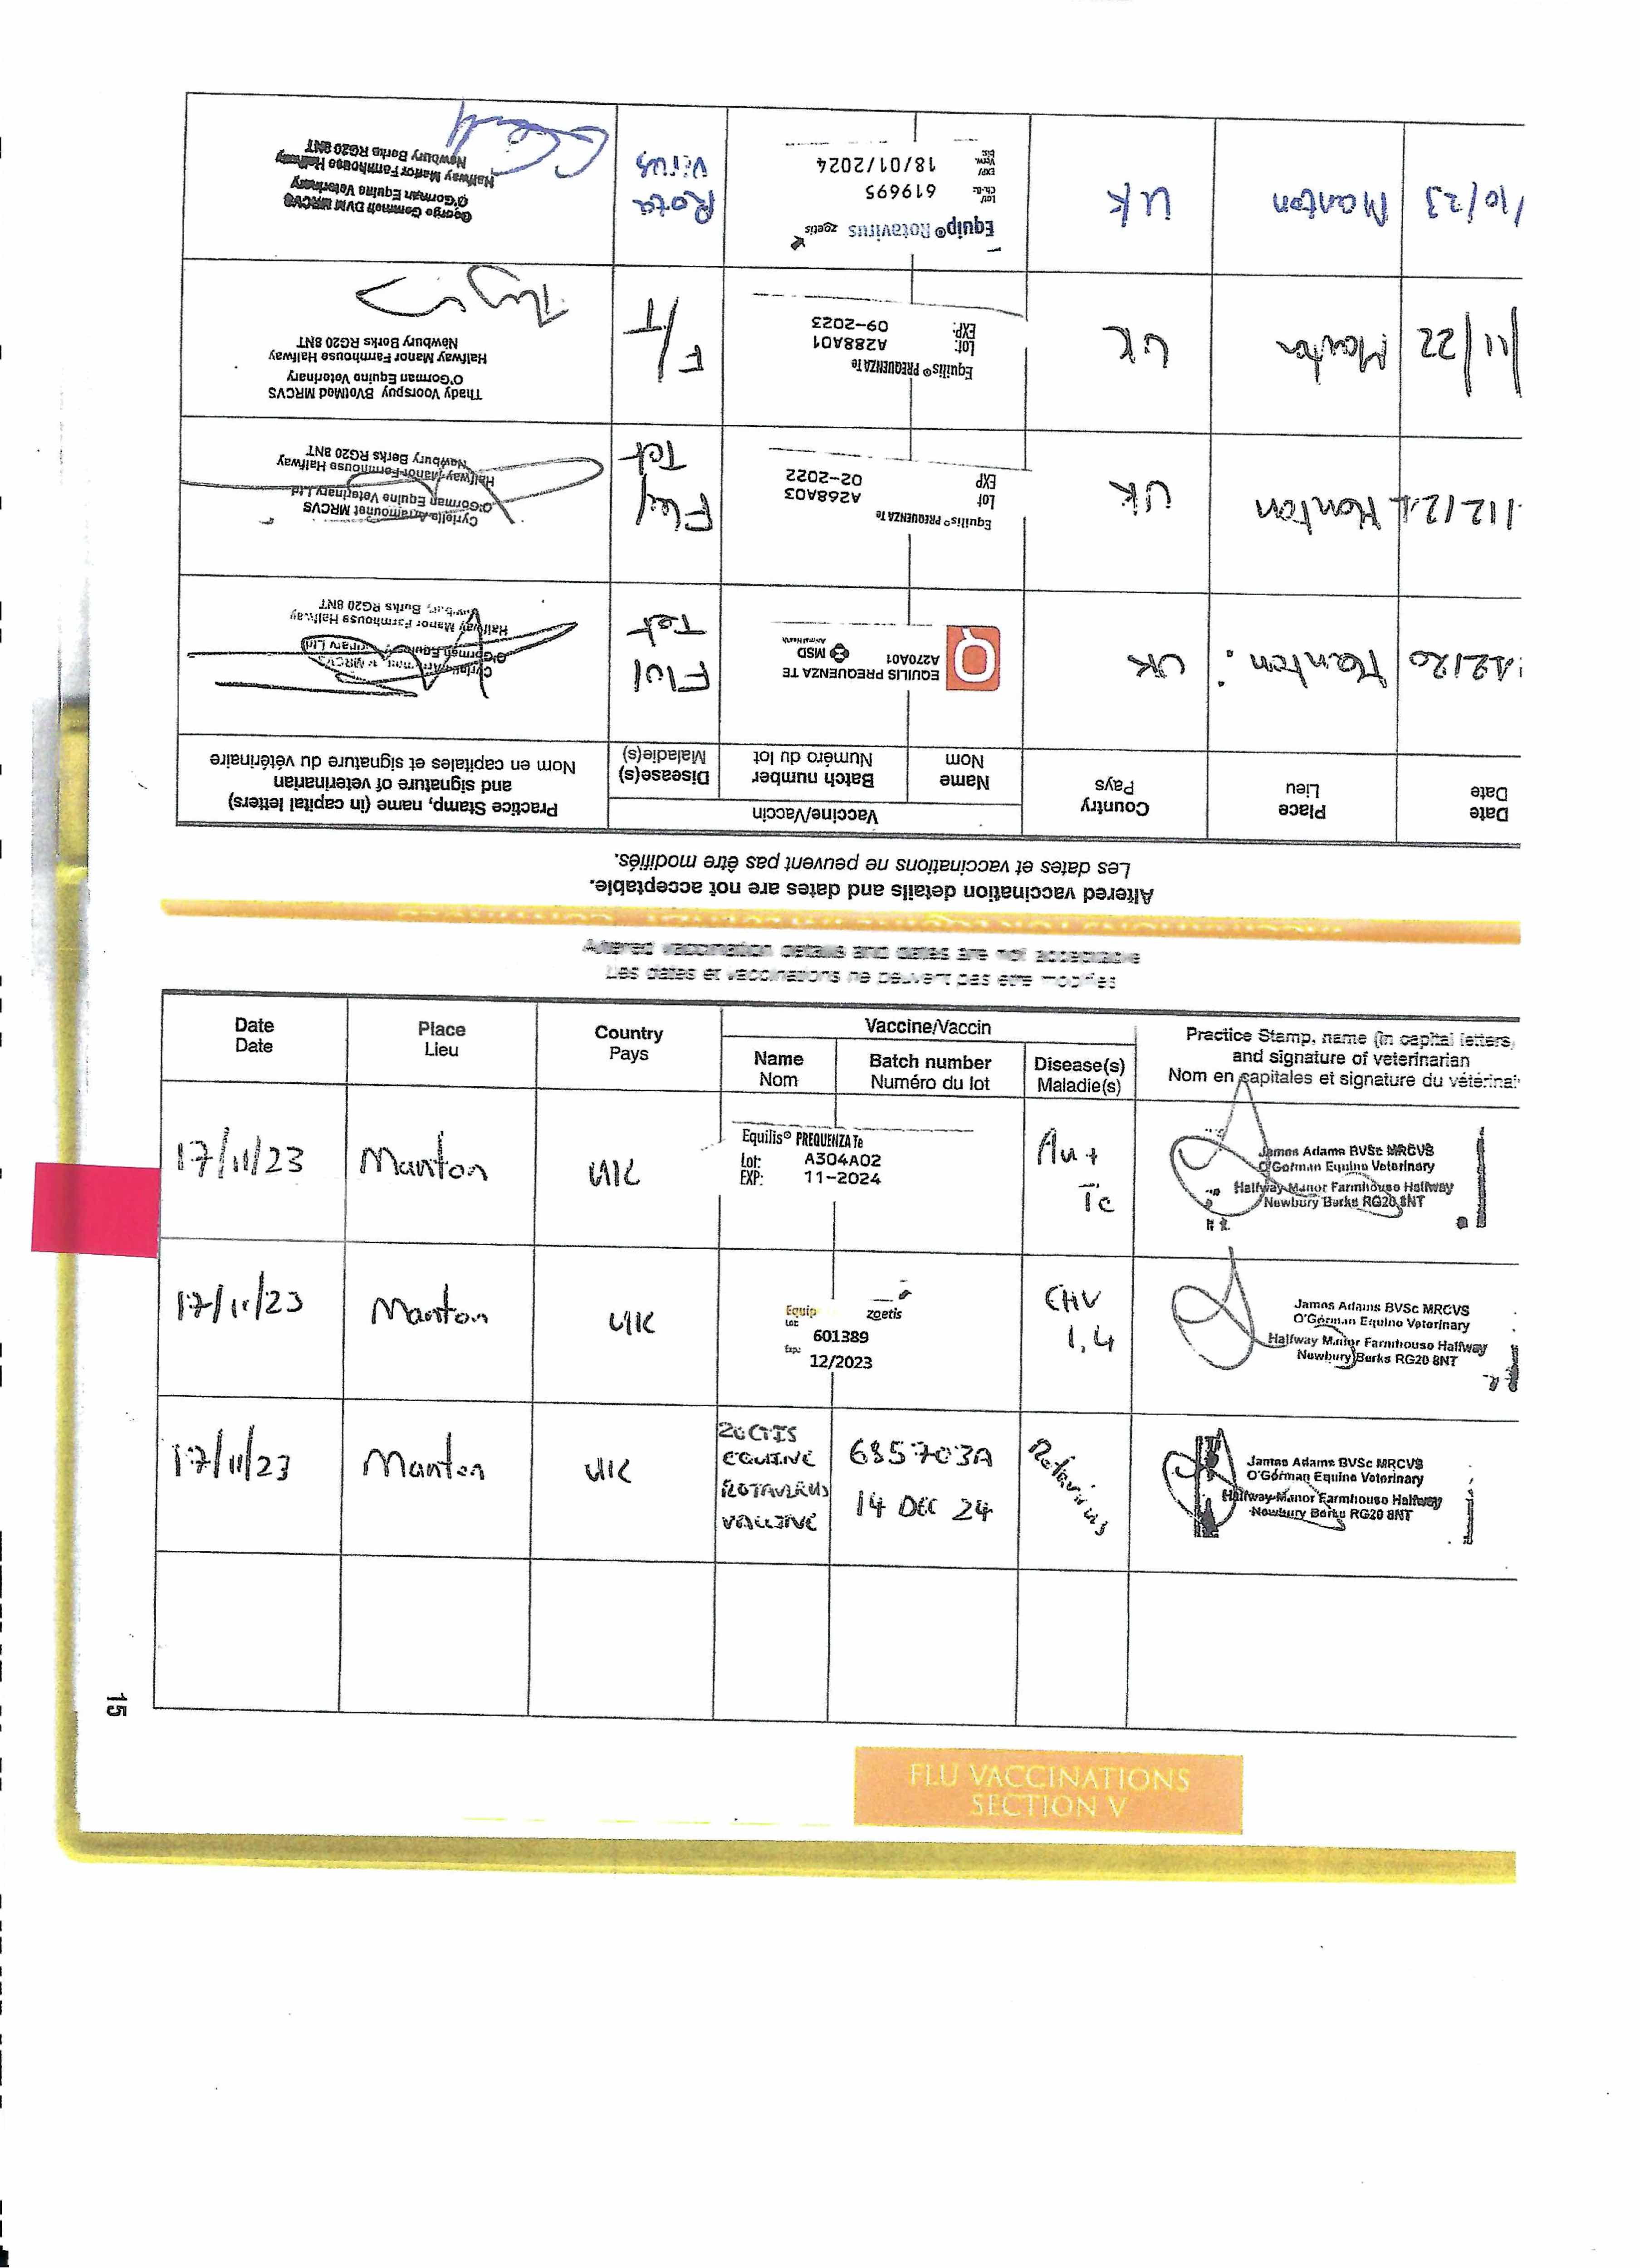 Altered vaccination details and dates are not acceptable.
Les dates et vaccinations ne peuvent pas être modifiés.
Date
Date
Place
Lieu
Country
Pays
Vaccine/Vaccin
Name
Nom
Batch number
Numéro du lot
Disease(s)
Maladie(s)
Practice Stamp, name (in capital letters)
and signature of veterinarian
Nom en capitales et signature du vétérinaire
12/20
Manton
UK
EQUILIS PREQUENZA TE
A270A01
MSD
Animal Health
Flu/
Tet
O'Gorman Equine Veterinary Ltd
Halfway Manor Farmhouse Halfway
Newbury Berks RG20 8NT
/12/21
Manton
UK
Equilis® PREQUENZA Te
Lot
A268A03
EXP
02-2022
Flu/
Tet
Cyrielle Arramounet MRCVS
O'Gorman Equine Veterinary Ltd
Halfway Manor Farmhouse Halfway
Newbury Berks RG20 8NT
/11/22
Manton
UK
Equilis® PREQUENZA Te
Lot:
A288A01
EXP:
09-2023
F/T
Thady Voorspuy BVetMed MRCVS
O'Gorman Equine Veterinary
Halfway Manor Farmhouse Halfway
Newbury Berks RG20 8NT
/10/23
Manton
UK
Equip® Rotavirus zoetis
619695
18/01/2024
Rota
Virus
O'Gorman Equine Veterinary
Halfway Manor Farmhouse Halfway
Newbury Berks RG20 8NT
Altered vaccination details and dates are not acceptable
Les dates et vaccinations ne peuvent pas être modifiés
Date
Date
Place
Lieu
Country
Pays
Vaccine/Vaccin
Name
Nom
Batch number
Numéro du lot
Disease(s)
Maladie(s)
Practice Stamp, name (in capital letters,
and signature of veterinarian
Nom en capitales et signature du vétérinai
17/11/23
Manton
UK
Equilis® PREQUENZA Te
Lot: A304A02
EXP: 11-2024
Flu +
Te
James Adams BVSc MRCVS
O'Gorman Equine Veterinary
Halfway Manor Farmhouse Halfway
Newbury Berks RG20 8NT
17/11/23
Manton
UK
Equip zoetis
Lot:
601389
Exp:
12/2023
EHV
1,4
James Adams BVSc MRCVS
O'Gorman Equine Veterinary
Halfway Manor Farmhouse Halfway
Newbury Berks RG20 8NT
17/11/23
Manton
UK
ZOETIS
EQUINE
ROTAVIRUS
VACCINE
685703A
14 DEC 24
Rotavirus
James Adams BVSc MRCVS
O'Gorman Equine Veterinary
Halfway Manor Farmhouse Halfway
Newbury Berks RG20 8NT
15
FLU VACCINATIONS
SECTION V